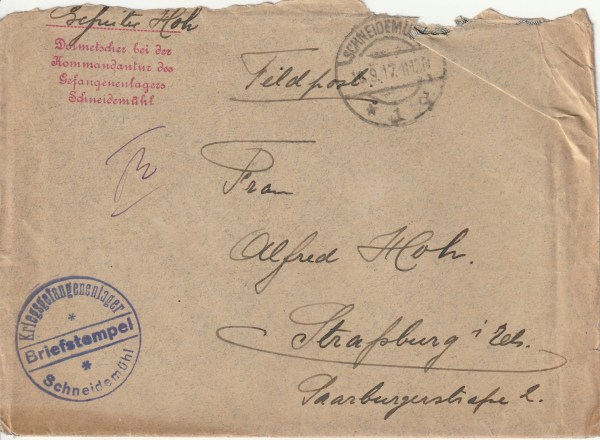 Gefreiter Hoh
Dolmetscher bei der
Kommandantur des
Gefangenenlagers
Schneidemühl
SCHNEIDEMÜ
9.17.
* 1 d
Feldpost.
Frau
Alfred Hoh.
Straßburg i/Els.
Saarburgerstraße 2.
Kriegsgefangenenlager
*
Briefstempel
*
Schneidemühl